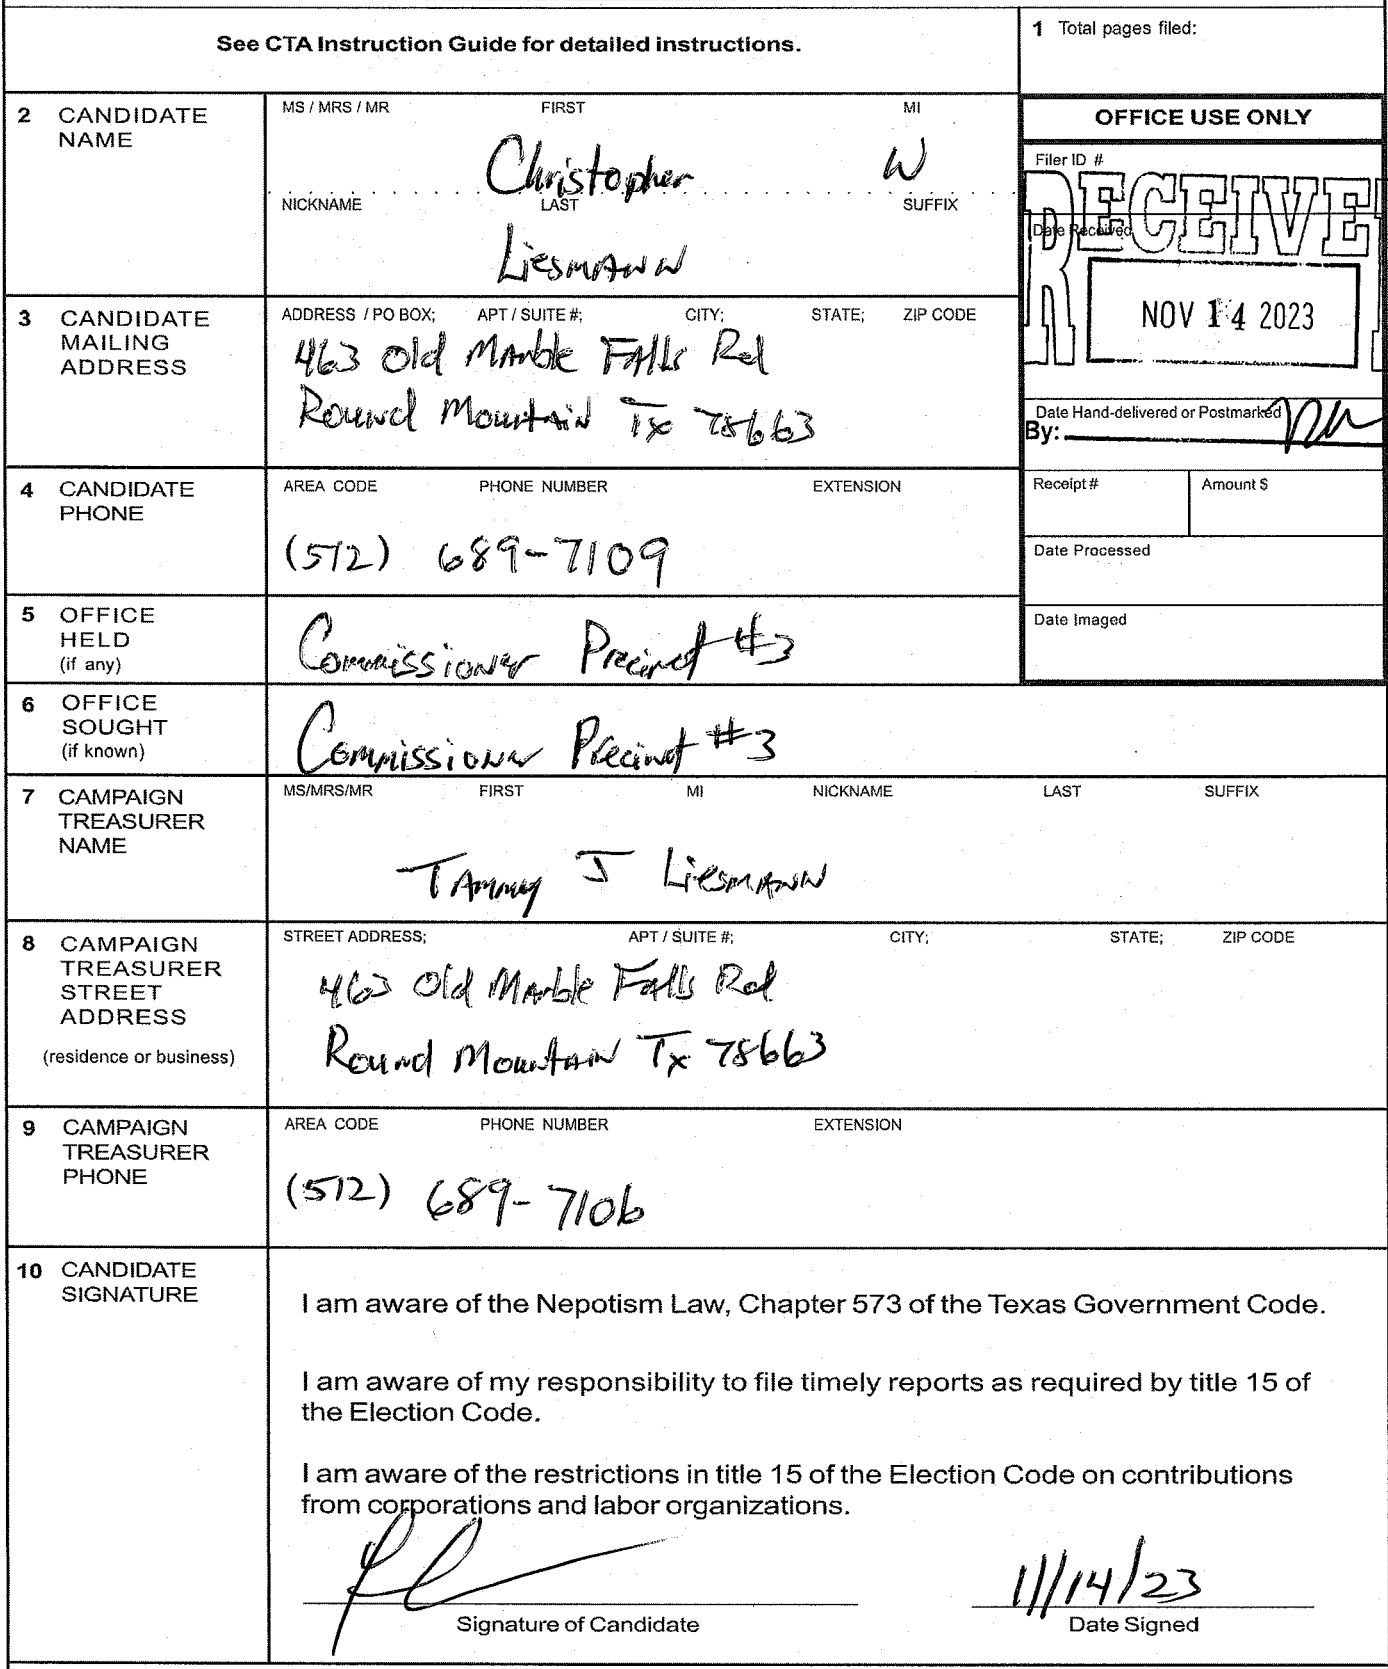 See CTA Instruction Guide for detailed instructions.
1 Total pages filed:
2 CANDIDATE NAME
MS / MRS / MR FIRST MI
Christopher W
NICKNAME LAST SUFFIX
Liesmann
OFFICE USE ONLY
Filer ID #
RECEIVE
Date Received
R
NOV 14 2023
Date Hand-delivered or Postmarked
By:
Receipt # Amount $
Date Processed
Date Imaged
3 CANDIDATE MAILING ADDRESS
ADDRESS / PO BOX; APT / SUITE #; CITY; STATE; ZIP CODE
463 Old Marble Falls Rd
Round Mountain Tx 78663
4 CANDIDATE PHONE
AREA CODE PHONE NUMBER EXTENSION
(512) 689-7109
5 OFFICE HELD (if any)
Commissioner Precinct #3
6 OFFICE SOUGHT (if known)
Commissioner Precinct #3
7 CAMPAIGN TREASURER NAME
MS/MRS/MR FIRST MI NICKNAME LAST SUFFIX
Tammy J Liesmann
8 CAMPAIGN TREASURER STREET ADDRESS
(residence or business)
STREET ADDRESS; APT / SUITE #; CITY; STATE; ZIP CODE
463 Old Marble Falls Rd
Round Mountain Tx 78663
9 CAMPAIGN TREASURER PHONE
AREA CODE PHONE NUMBER EXTENSION
(512) 689-7106
10 CANDIDATE SIGNATURE
I am aware of the Nepotism Law, Chapter 573 of the Texas Government Code.
I am aware of my responsibility to file timely reports as required by title 15 of
the Election Code.
I am aware of the restrictions in title 15 of the Election Code on contributions
from corporations and labor organizations.
11/14/23
Signature of Candidate Date Signed